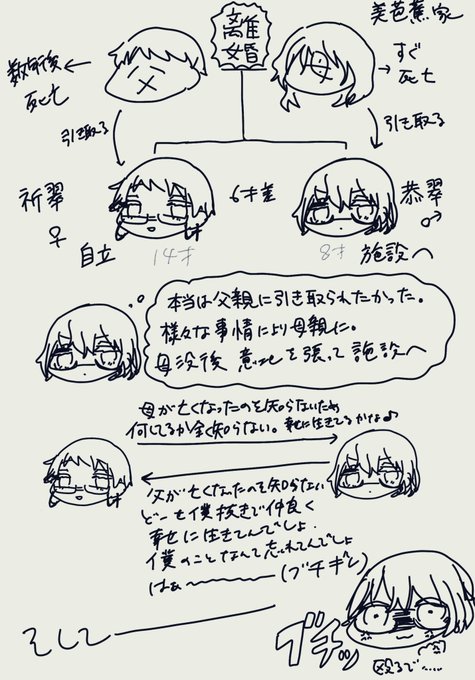 美芭蕉家
離婚
数年後
死亡
すぐ
死亡
引き取る
引き取る
祈翠
♀
自立
14才
6才差
8才
恭翠
♂
施設へ
本当は父親に引き取られたかった。
様々な事情により母親に。
母没後 意地を張って施設へ
母が亡くなったのを知らないため
何してるか全く知らない。幸せに生きてるかな♪
父が亡くなったのを知らない
どーせ僕抜きで仲良く
幸せに生きてんでしょ.
僕のことなんて忘れてんでしょ
はぁ〜〜〜〜(ブチギレ)
そして
ブチッ
殴るで……